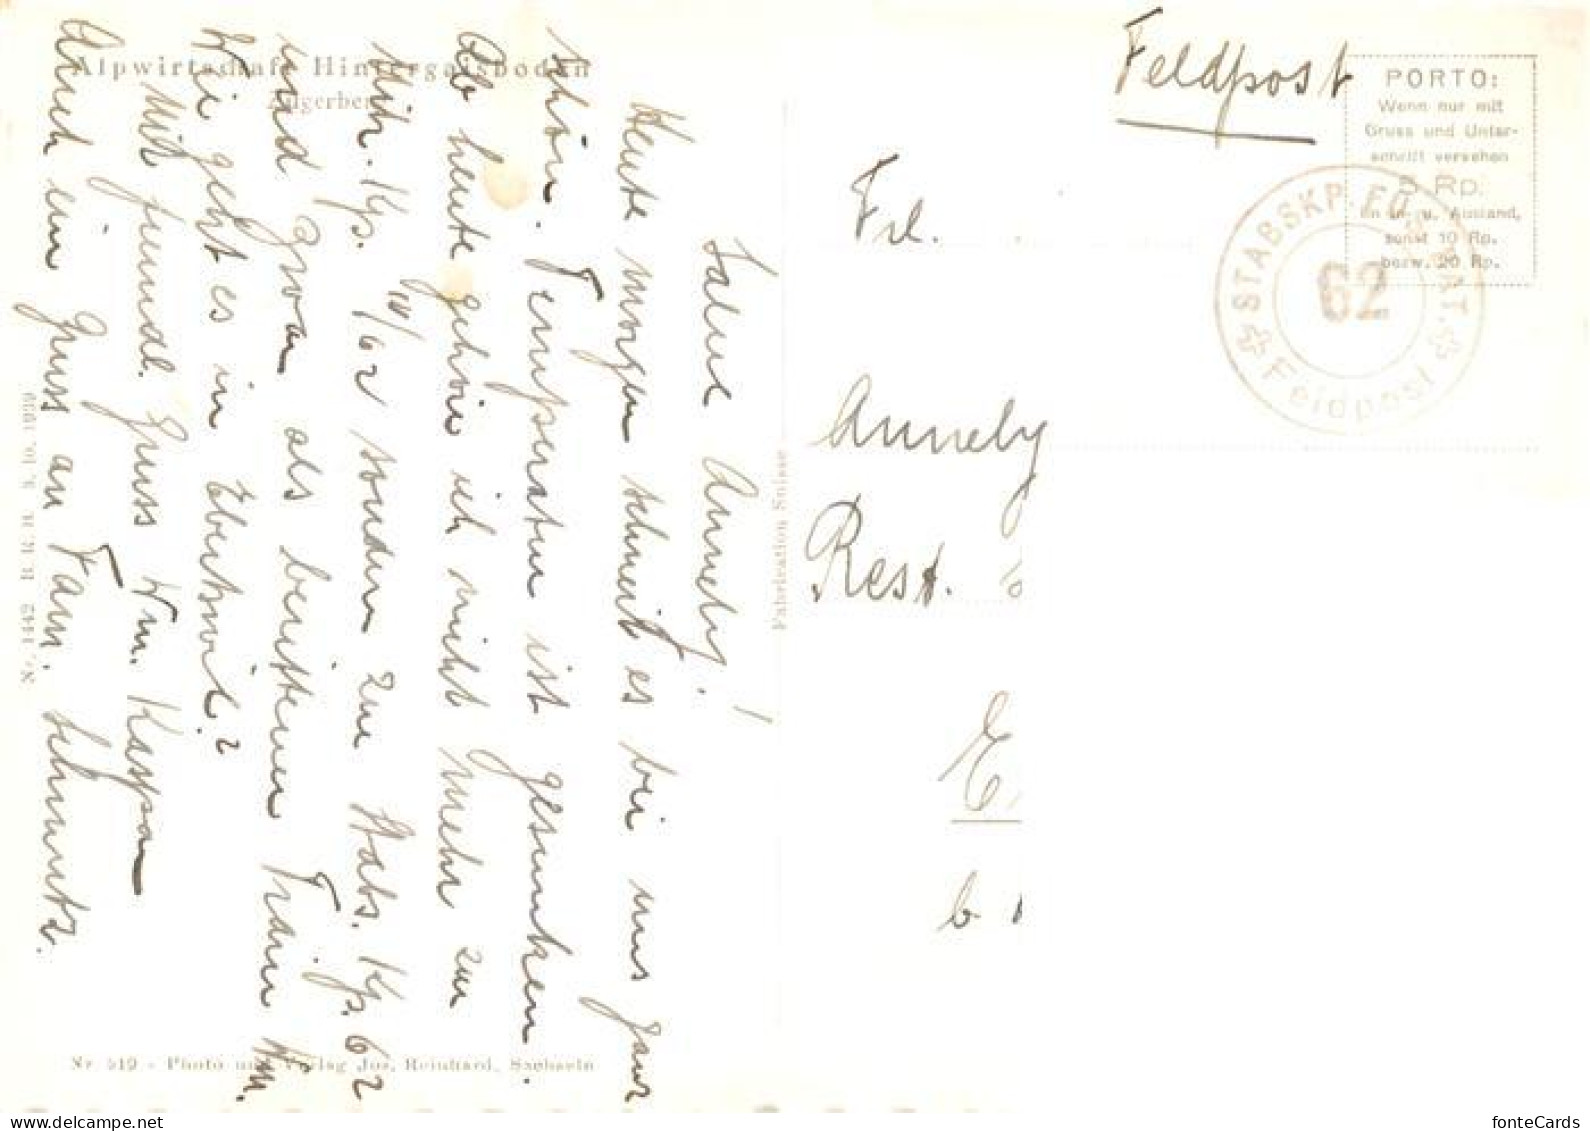 Alpwirtschaft Hintergaisboden
Salue Anneby!
Heute morgen schneit es bei uns ganz
schön. Temperatur ist gesunken.
Ab heute gehöre ich nicht mehr zur
Mitr. Kp. IV/62 sondern zur Stabs. Kp. 62
und zwar als berittener Train Wm.
Wie geht es in Ebertswil?
Mit freundl. Gruss Wm. Kaspar
Auch ein Gruss an Fam. Schmutz.
Nr. 1442 B. R. B. 3. 10. 1939
Nr. 519 - Photo und Verlag Jos. Reinhard, Sachseln
Fabrication Suisse
Feldpost
PORTO:
Wenn nur mit
Gruss und Unter-
schrift versehen
5 Rp.
im In- u. Ausland,
sonst 10 Rp.
bezw. 20 Rp.
STABSKP.
62
Feldpost
Frl.
Anneby
Rest.
E
b.
fonteCards